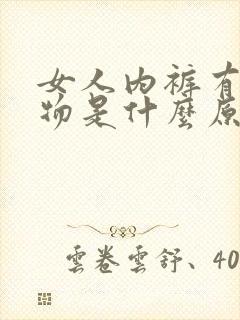 女人内裤有
物是什麼原
雲卷雲舒、40